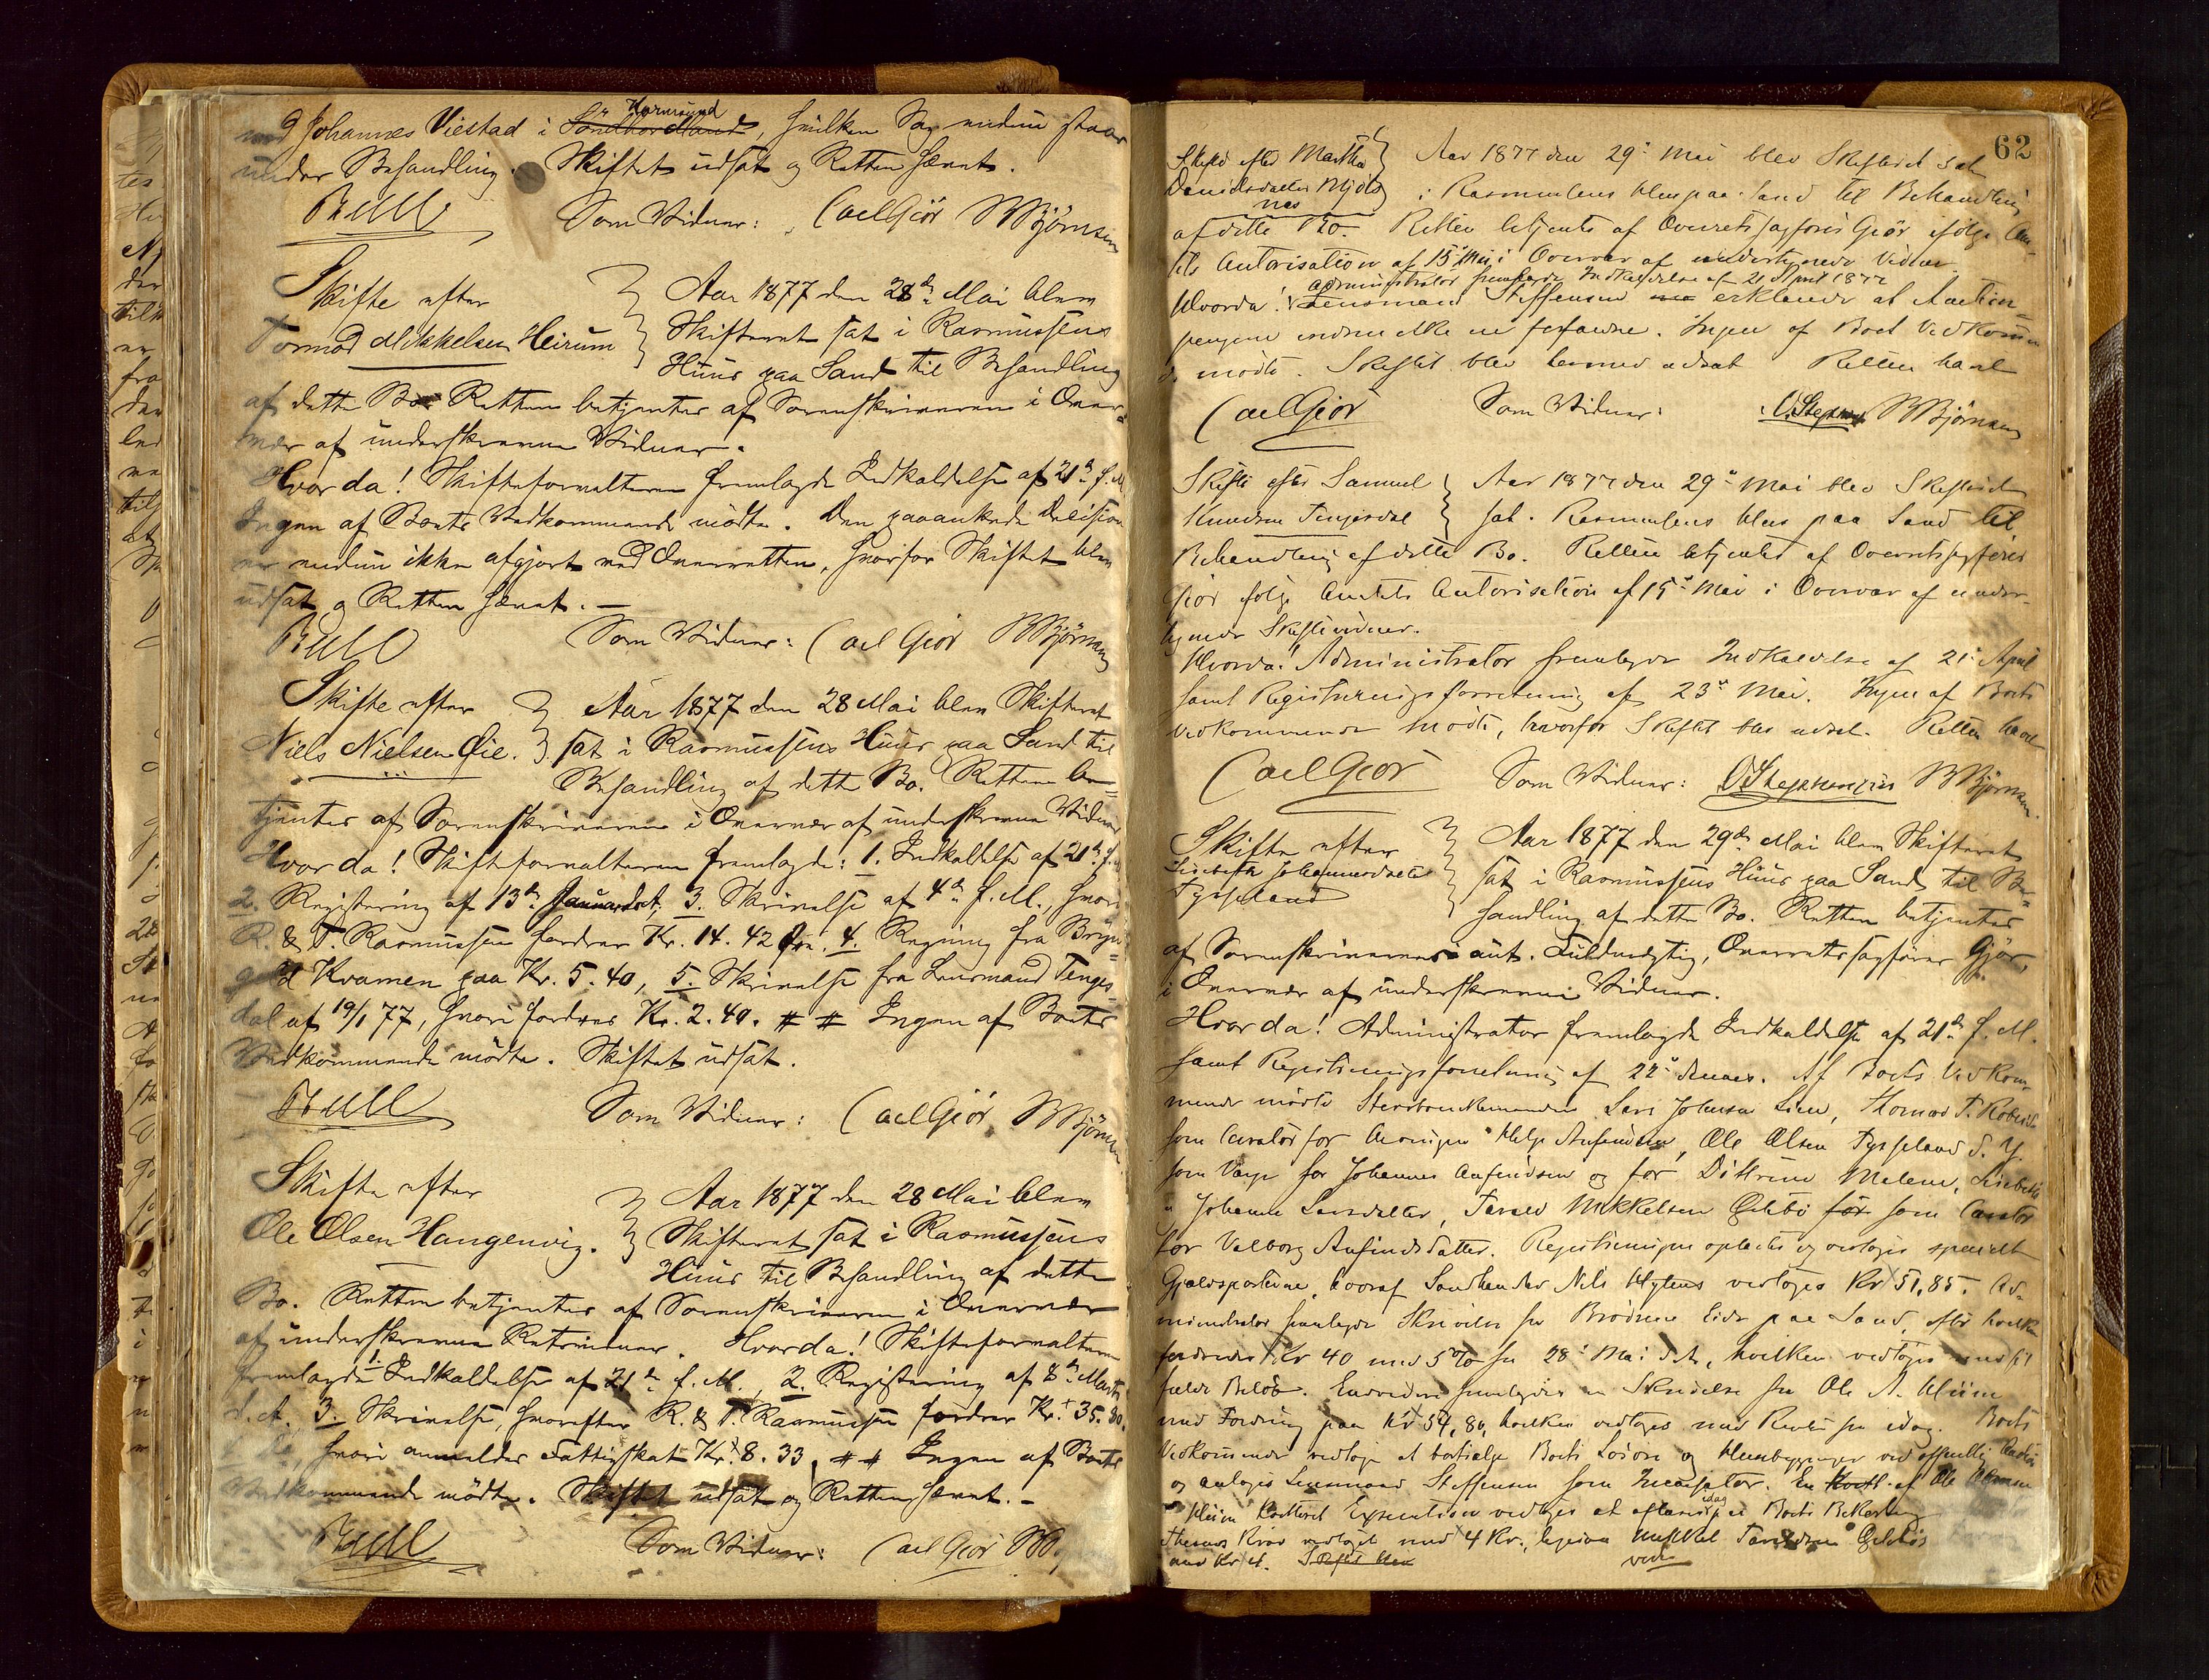 mod Johannes Viestad i Söndhordland Karmsund, hvilken Sag endnu staar
under Behandling. Skiftet udsat og Retten hævet.
Bull Som Vidner: Carl Giör BBjörnsen
Skifte efter
Tormod Mikkelsen Heirum
Aar 1877 den 28de Mai blev
Skifteret sat i Rasmussens
Huus paa Sand til Behandling
af dette Bo. Retten betjentes af Sorenskriveren i Over-
vær af underskrevne Vidner.
Hvor da! Skifteforvalteren fremlagde Indkaldelse af 21de f. M.
Ingen af Boets Vedkommende mödte. Den paaankede Decision
er endnu ikke afgjort ved Overretten, hvorfor Skiftet blev
udsat og Retten hævet. —
Bull Som Vidner: Carl Giör BBjörnsen
Skifte efter
Niels Nielsen Øie.
Aar 1877 den 28 Mai blev Skifteret
sat i Rasmussens Huus paa Sand til
Behandling af dette Bo. Retten be-
tjentes af Sorenskriveren i Overvær af underskrevne Vidner
Hvor da! Skifteforvalteren fremlagde: 1. Indkaldelse af 21de f. M.
2. Registering af 13de Januar d.A., 3. Skrivelse af 4de f. M., hvori
R. & T. Rasmussen fordrer Kr. 14. 42 Øre. 4. Regning fra Bryn-
gel Kvamen paa Kr. 5. 40, 5. Skrivelse fra Lensmand Tenges-
dal af 19/1 77, hvori fordres Kr. 2. 40. # # Ingen af Boets
Vedkommende mödte. Skiftet udsat.
Bull Som Vidner: Carl Giör, BBjörnsen
Skifte efter
Ole Olsen Hangenvig.
Aar 1877 den 28 Mai blev
Skifteret sat i Rasmussens
Huus til Behandling af dette
Bo. Retten betjentes af Sorenskriveren i Overvær
af underskrevne Retsvidner. Hvor da! Skifteforvalteren
fremlagde 1. Indkaldelse af 21de f. M., 2. Registering af 8de Marts
d. A. 3. Skrivelse, hvorefter R. & T. Rasmussen fordrer Kr. 35. 80.
hvori anmeldes Fattigskat Kr. 8. 33. # # Ingen af Boets
Vedkommende mödte. Skiftet udsat og Retten hævet. –
Bull Som Vidner: Carl Giör BB
62
Skifte efter Martha
Davidsdatter Mjölsnes
Aar 1877 den 29de Mai blev Skifteret sat
i Rasmussens Huus paa Sand til Behandling
af dette Bo. Retten betjentes af Overretssagförer Giör ifölge Am-
tets Autorisation af 15de Mai i Overvær af undertegnede Vidner
Administrator fremlagde Indkaldelse af 21 April 1877
Hvorda! Lensmand Steffensen erklærede at Auction-
pengene endnu ikke er forfaldne. Ingen af Boets Vedkommen-
de mödte. Skiftet blev hermed udsat Retten hævet
Carl Giör Som Vidner: O. Steffensen BBjörnsen
Skifte efter Samuel
Knudsen Tengesdal
Aar 1877 den 29de Mai blev Skifteret
sat i Rasmussens Huus paa Sand til
Behandling af dette Bo. Retten betjentes af Overretssagförer
Giör ifölge Amtets Autorisation af 15de Mai i Overvær af under-
tegnede Skiftevidner.
Hvorda! Administrator fremlagde Indkaldelse af 21de April
samt Registreringsforretning af 23de Mai. Ingen af Boets
Vedkommende mödte, hvorfor Skiftet blev udsat. Retten hævet
Carl Giör Som Vidner: O. Steffensen BBjörnsen
Skifte efter
Lisebeth Johannesdatter
Tysseland
Aar 1877 den 29de Mai blev Skifteret
sat i Rasmussens Huus paa Sand til Be-
handling af dette Bo. Retten betjentes
af Sorenskriverens aut. Fuldmægtig, Overretssagförer Gjör,
i Overvær af underskrevne Vidner.
Hvor da! Administrator fremlagde Indkaldelse af 21de f. M.
samt Registreringsforretning af 22de dennes. Af Boets Vedkom-
mende mödte Lars Johnsen Lien, Thomas T.
som Curator for Helge Anfindsen, Ole Olsen Tysseland d. Y.
som Værge for Johannes Anfindsen og for Malene, Lisebeth
Johanne Larsdatter, Mikkelsen för som Curator
for Valborg Anfindsdatter. Registreringen oplæstes og vedtoges specielt
Gjældsposterne, hvoraf Sandhandler Nils vedtoges Kr 51,85. Ad-
ministrator fremlagde Skrivelse fra Brödrene Eide paa Sand, efter hvilken
fordredes Kr 40 med 5% fra 28de Mai d.A., hvilken vedtoges
Belöb. Endvidere fremlagdes en Skrivelse fra Ole A.
med Fordring paa Kr 54,80, hvilken vedtoges med Renter fra idag. Boets
Vedkommende vedtoge at bortsælge Boets Lösöre og ved offentlig Auktion
og antoges Lensmand Steffensen som Incassator.
Thomas vedtoges med 4 Kr., ligesom Mikkel
med Kr 4. Skiftet blev